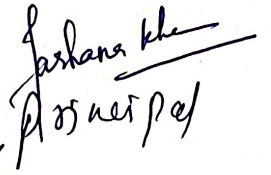 Farhana Khan
Principal